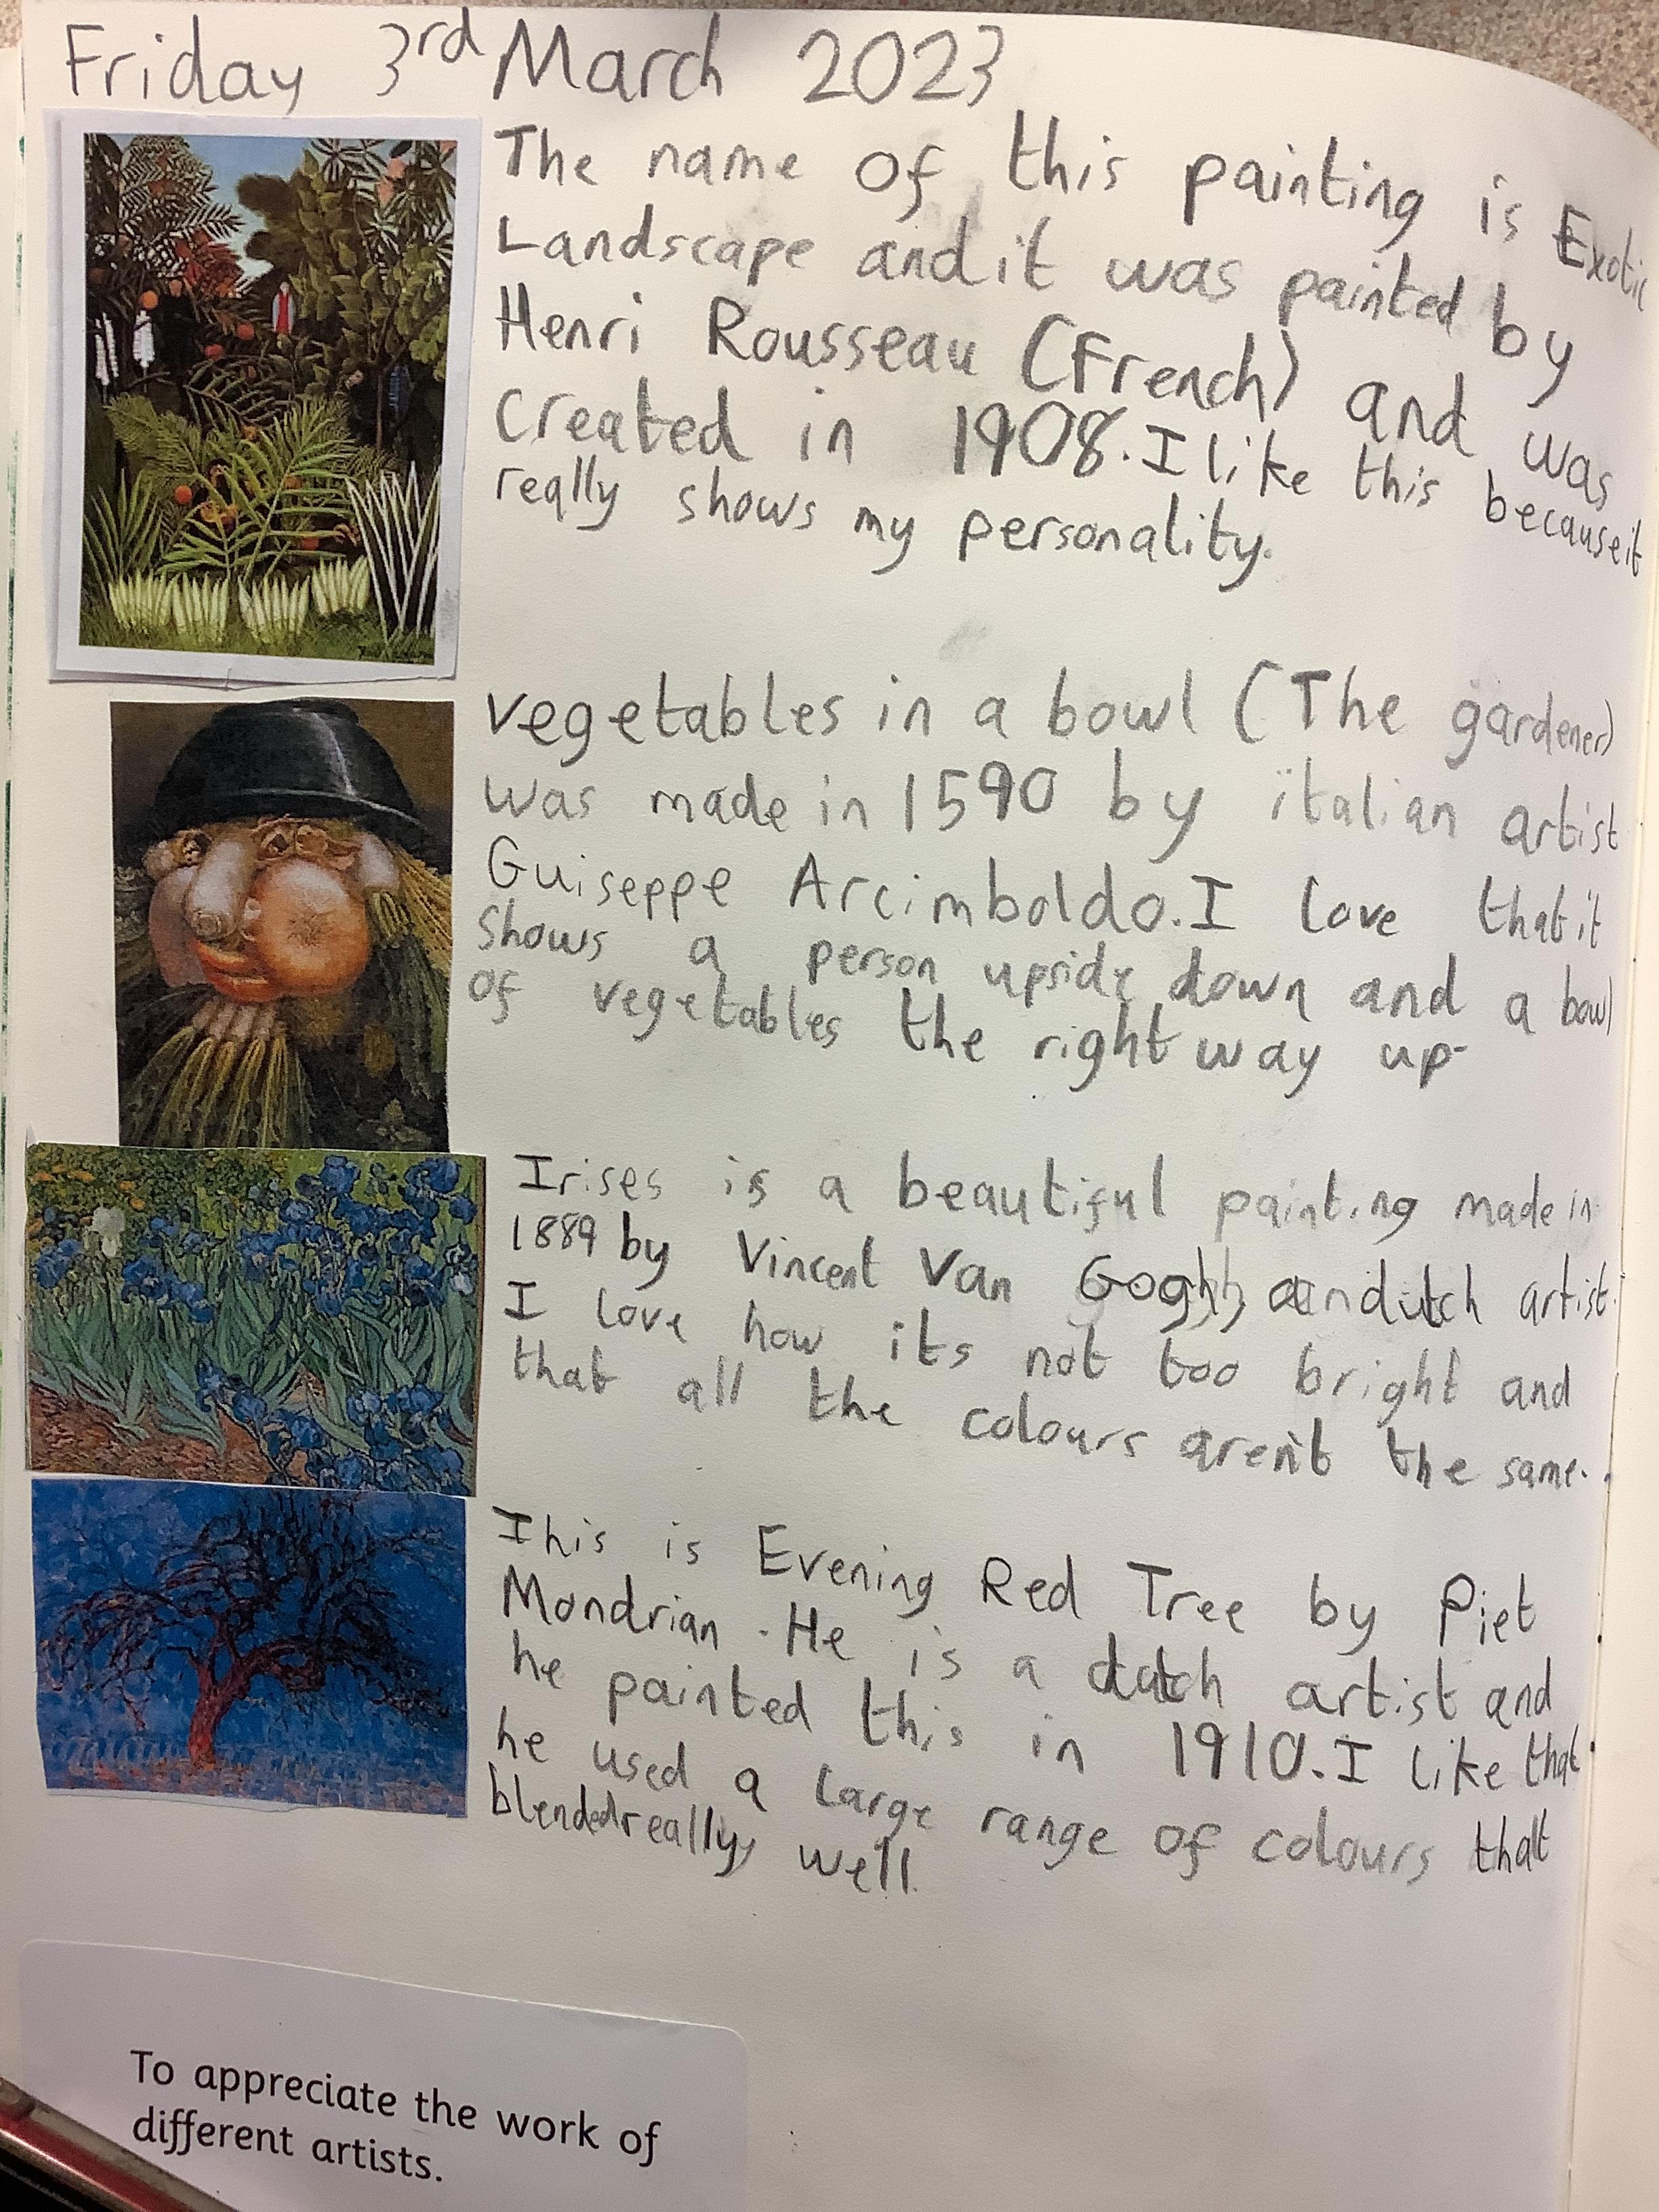 Friday 3rd March 2023
The name of this painting is Exotic
Landscape and it was painted by
Henri Rousseau (French) and was
created in 1908. I like this because it
really shows my personality.
vegetables in a bowl (The gardener)
was made in 1590 by italian artist
Guiseppe Arcimboldo. I love that it
shows a person upside down and a bowl
of vegetables the right way up.
Irises is a beautiful painting made in
1889 by Vincent Van Gogh, an dutch artist.
I love how its not too bright and
that all the colours aren't the same.
This is Evening Red Tree by Piet
Mondrian. He is a dutch artist and
he painted this in 1910. I like that
he used a large range of colours that
blended really well.
To appreciate the work of
different artists.